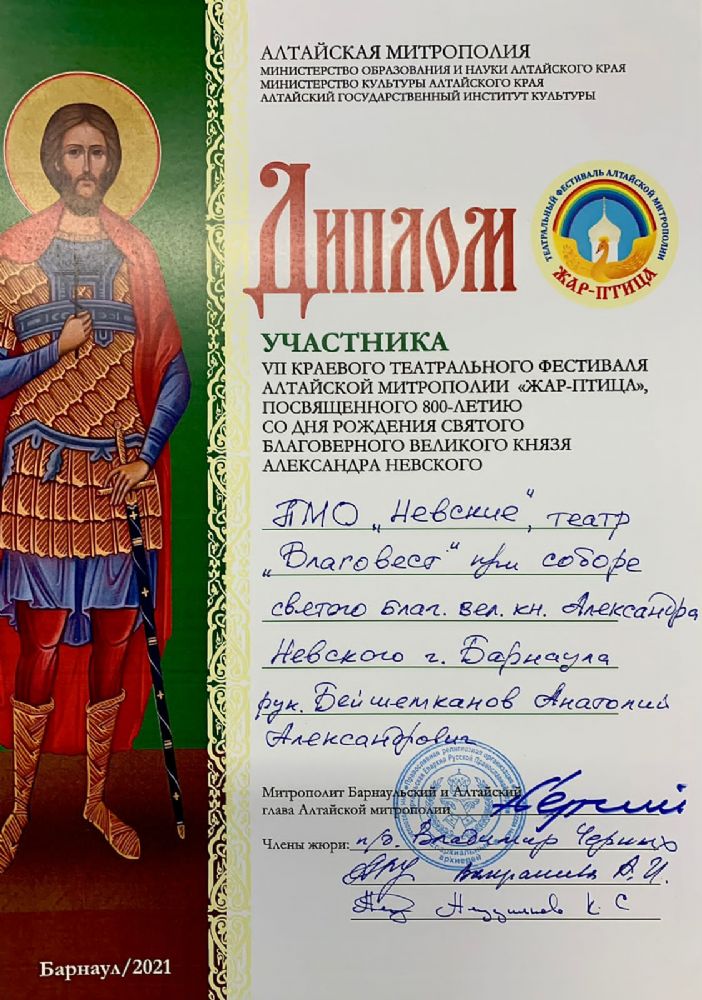 АЛТАЙСКАЯ МИТРОПОЛИЯ
МИНИСТЕРСТВО ОБРАЗОВАНИЯ И НАУКИ АЛТАЙСКОГО КРАЯ
МИНИСТЕРСТВО КУЛЬТУРЫ АЛТАЙСКОГО КРАЯ
АЛТАЙСКИЙ ГОСУДАРСТВЕННЫЙ ИНСТИТУТ КУЛЬТУРЫ
ДИПЛОМ
ТЕАТРАЛЬНЫЙ ФЕСТИВАЛЬ АЛТАЙСКОЙ МИТРОПОЛИИ
ЖАР-ПТИЦА
УЧАСТНИКА
VII КРАЕВОГО ТЕАТРАЛЬНОГО ФЕСТИВАЛЯ
АЛТАЙСКОЙ МИТРОПОЛИИ «ЖАР-ПТИЦА»,
ПОСВЯЩЕННОГО 800-ЛЕТИЮ
СО ДНЯ РОЖДЕНИЯ СВЯТОГО
БЛАГОВЕРНОГО ВЕЛИКОГО КНЯЗЯ
АЛЕКСАНДРА НЕВСКОГО
ПМО „Невские", театр
„Благовест" при соборе
святого благ. вел. кн. Александра
Невского г. Барнаула
рук. Бейшемканов Анатолий
Александрович
Митрополит Барнаульский и Алтайский
глава Алтайской митрополии
Члены жюри: Владимир Черных
А. И.
К. С
Барнаул/2021